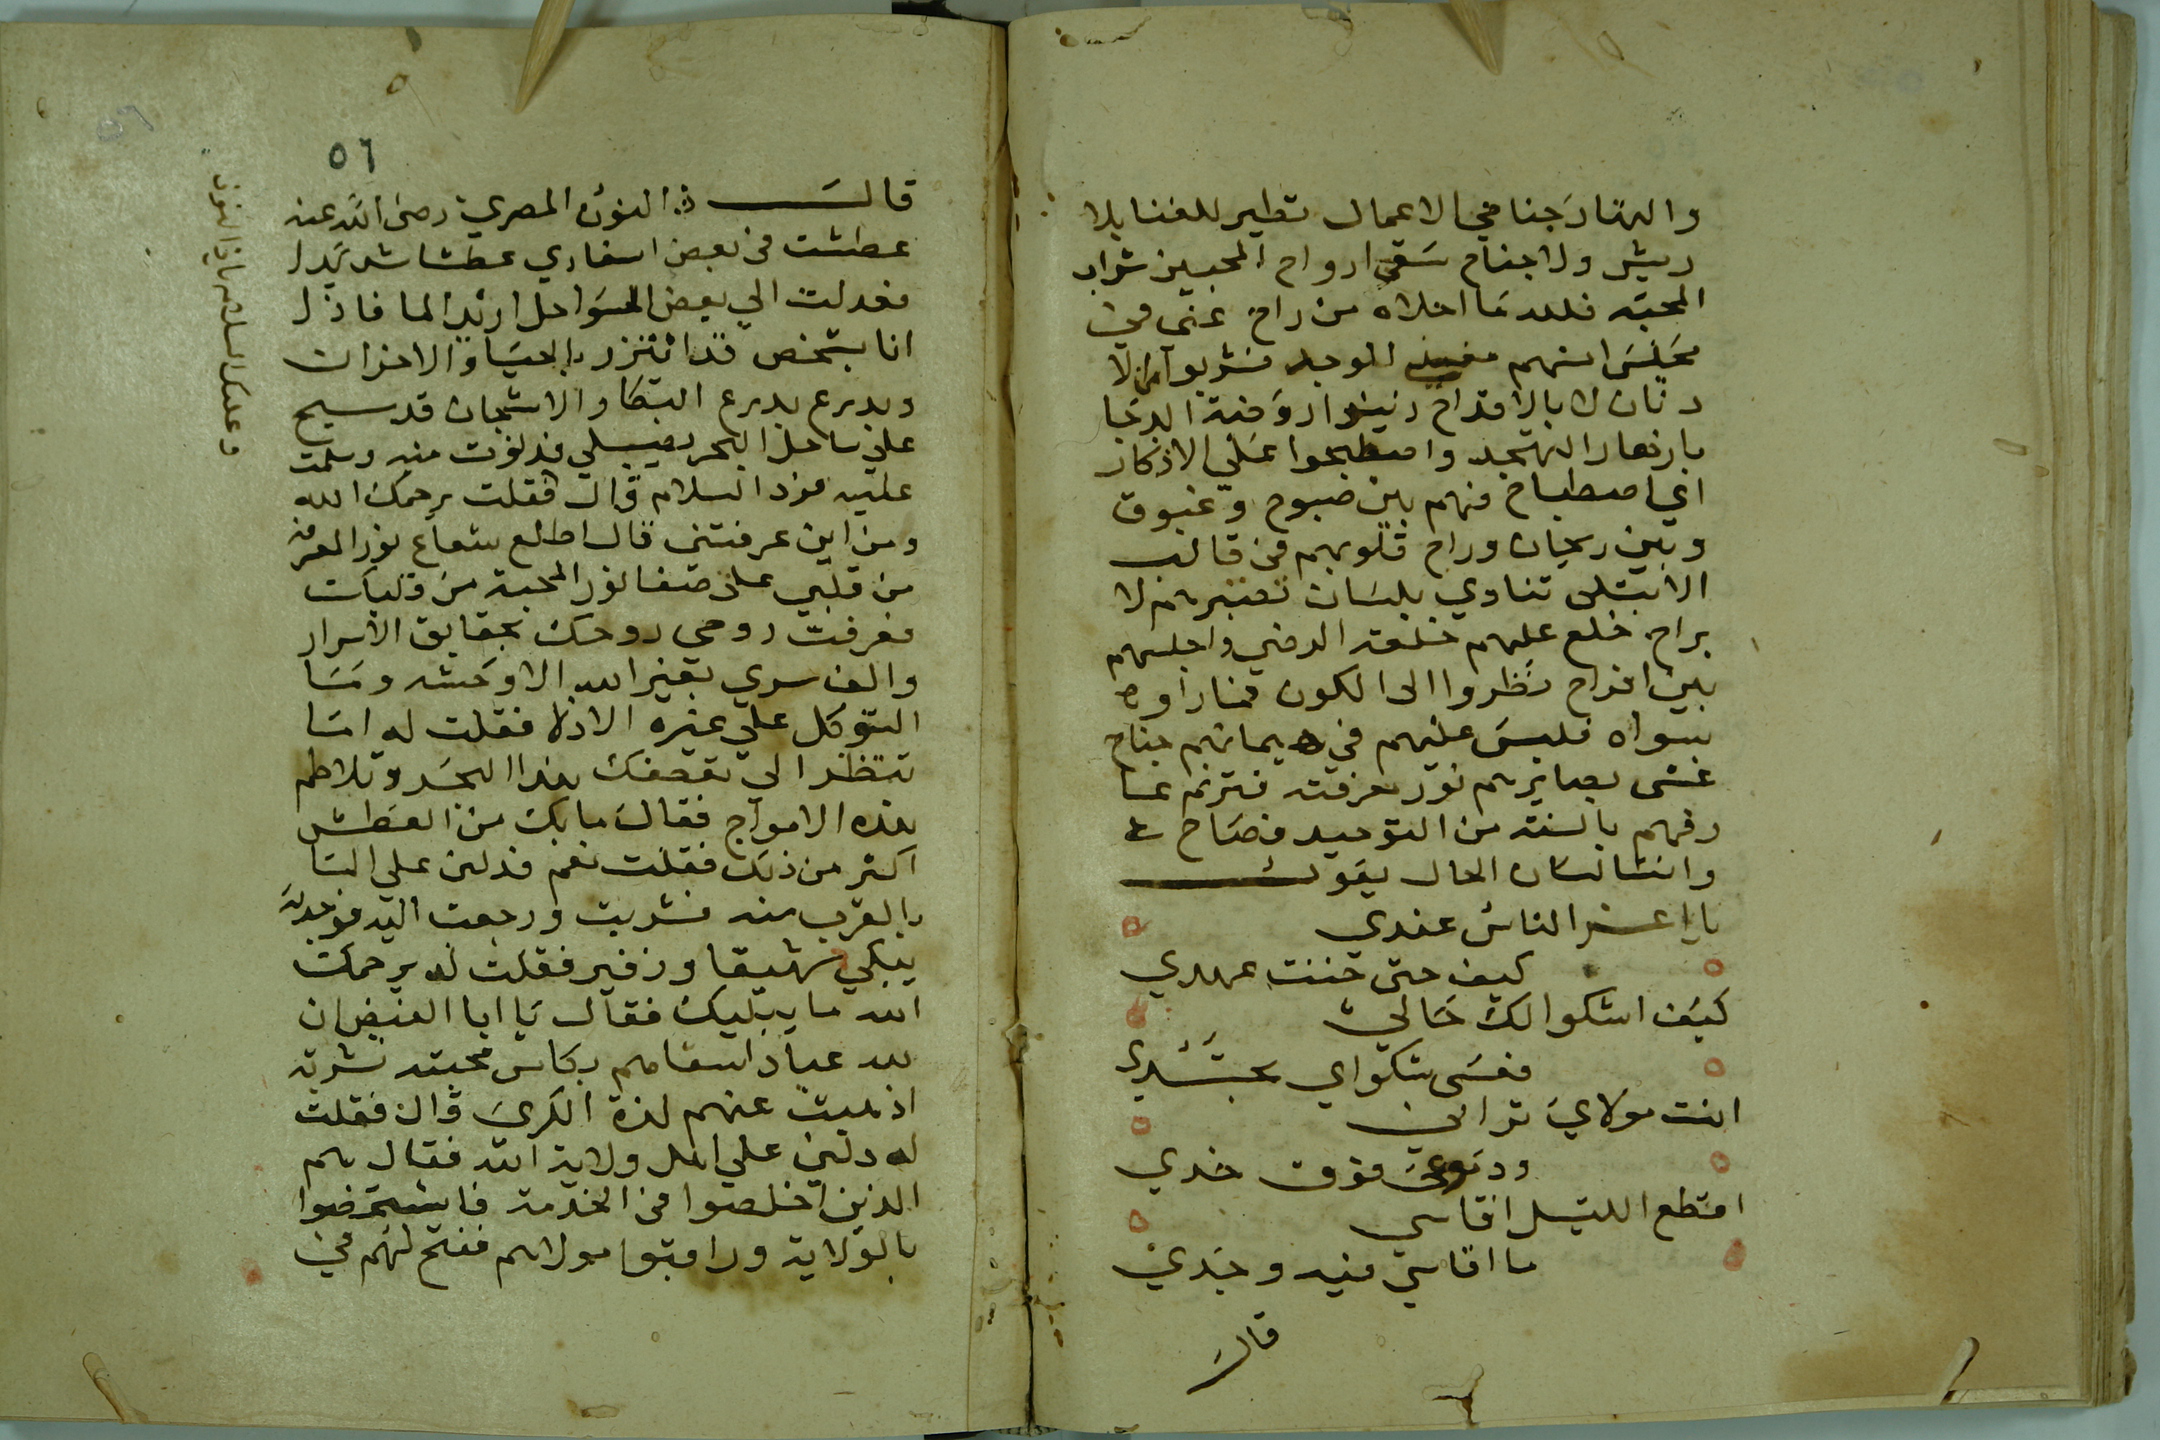 والنهار جناحي الاعمال تطير للفنا بلا
ريش ولا جناح سقي ارواح المحبين شراب
المحبه فلله ما احلاه من راح غني في
مجلس انسهم الوجد فشربوا
دنان لا بالاقداح روضة الدجا
بازهار التهجد واصطبحوا علي الاذكار
اي اصطباح فهم بين صبوح وغبوق
وبين ريحان وراح قلوبهم في قالب
الابتلي تنادي بلسان لا
براح خلع عليهم خلعة الرضي واجلسهم
بين افراح نظروا الي الكون فما راوه
سواه فليس عليهم في هيمانهم جناح
غشي بصايرهم نور معرفته فترنم عا
رفهم بالسنة من التوحيد فصاح
وانشا لسان الحال يقول
يا اعز الناس عندي
كيف حتى خنت عهدي
كيف اشكوا لك حالي
فعسى شكواي تجدي
انت مولاي تراني
ودموعي فوق خدي
اقطع الليل اقاسي
ما اقاسي فيه وحدي
قال
٥٦
قال ذا النون المصري رضي الله عنه
عطشت في بعض اسفاري عطشا شديدا
فعدلت الي بعض السواحل اريد الما فاذا
انا بشخص قد ائتزر بالحيا والاحزان
وبدرع بدرع البكا والاشجان قد سيح
علي ساحل البحر يصلي فدنوت منه وسلمت
عليه فرد السلام قال فقلت يرحمك الله
ومن اين عرفتني قال اطلع شعاع نور المعرفة
من قلبي على صفا نور المحبة من قلبك
فعرفت روحي روحك بحقايق الاسرار
والف سري بغير الله الا وحشه وما
التوكل علي غيره الا ذل فقلت له اما
تنظر الي تقصفك هذا البحر وتلاطم
هذه الامواج فقال ما بك من العطش
اكثر من ذلك فقلت نعم فدلني علي الما
بالقرب منه فشربت ورجعت اليه فوجدته
يبكي شهيقا وزفير فقلت له يرحمك
الله ما يبكيك فقال يا ابا الفيض ان
لله عبادا سقاهم بكاس محبته شربة
اذهبت عنهم لذة الكرى قال فقلت
له دلني علي اهل ولاية الله فقال هم
الذين اخلصوا في الخدمة
بالولاية وراقبوا مولاهم ففتح لهم في
وعليك السلام ياذا النون